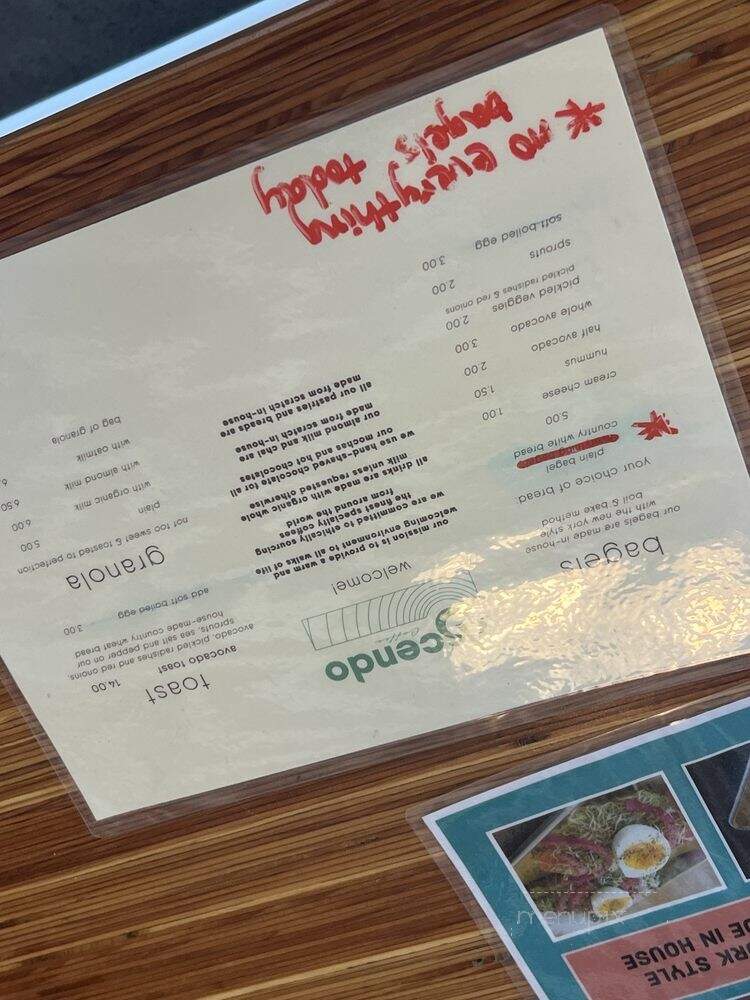 bagels
our bagels are made in-house
with the new york style
boil & bake method
your choice of bread
plain bagel
country white bread
5.00
cream cheese 1.00
hummus 1.50
half avocado 2.00
whole avocado 3.00
pickled veggies 2.00
pickled radishes & red onions
sprouts 2.00
soft boiled egg 3.00
cendo
coffee
welcome!
our mission is to provide a warm and
welcoming environment to walks of life
we are committed to ethically sourcing
the finest specialty coffees
from around the world
all drinks are made with organic whole
milk unless requested otherwise
we use hand-shaved chocolate for all
our mochas and hot chocolates
our almond milk and chai are
made from scratch in-house
all our pastries and breads are
made from scratch in-house
toast
avocado toast 14.00
avocado, pickled radishes and red onions,
sprouts, sea salt and pepper on our
house-made country wheat bread
add soft boiled egg 3.00
granola
not too sweet & toasted to perfection
plain 5.00
with organic milk 6.00
with almond milk 6.50
with oatmilk 6.
bag of granola
* no everything
bagels today
RK STYLE
DE IN HOUSE
menupix